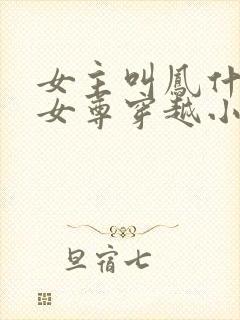 女主叫鳳什
女尊穿越小
旦宿七